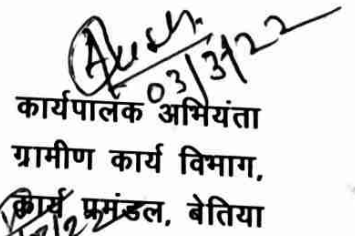 03/3/22
कार्यपालक अभियंता
ग्रामीण कार्य विभाग,
कार्य प्रमंडल, बेतिया